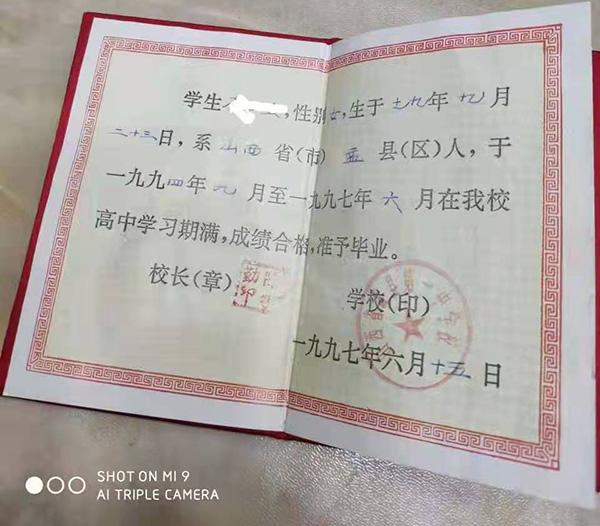 学生 ,性别女,生于七九年九月
二十三日,系山西省(市)盂县(区)人,于
一九九四年九月至一九九七年六月在我校
高中学习期满,成绩合格,准予毕业。
校长(章)
学校(印)
一九九七年六月十五日
SHOT ON MI 9
AI TRIPLE CAMERA